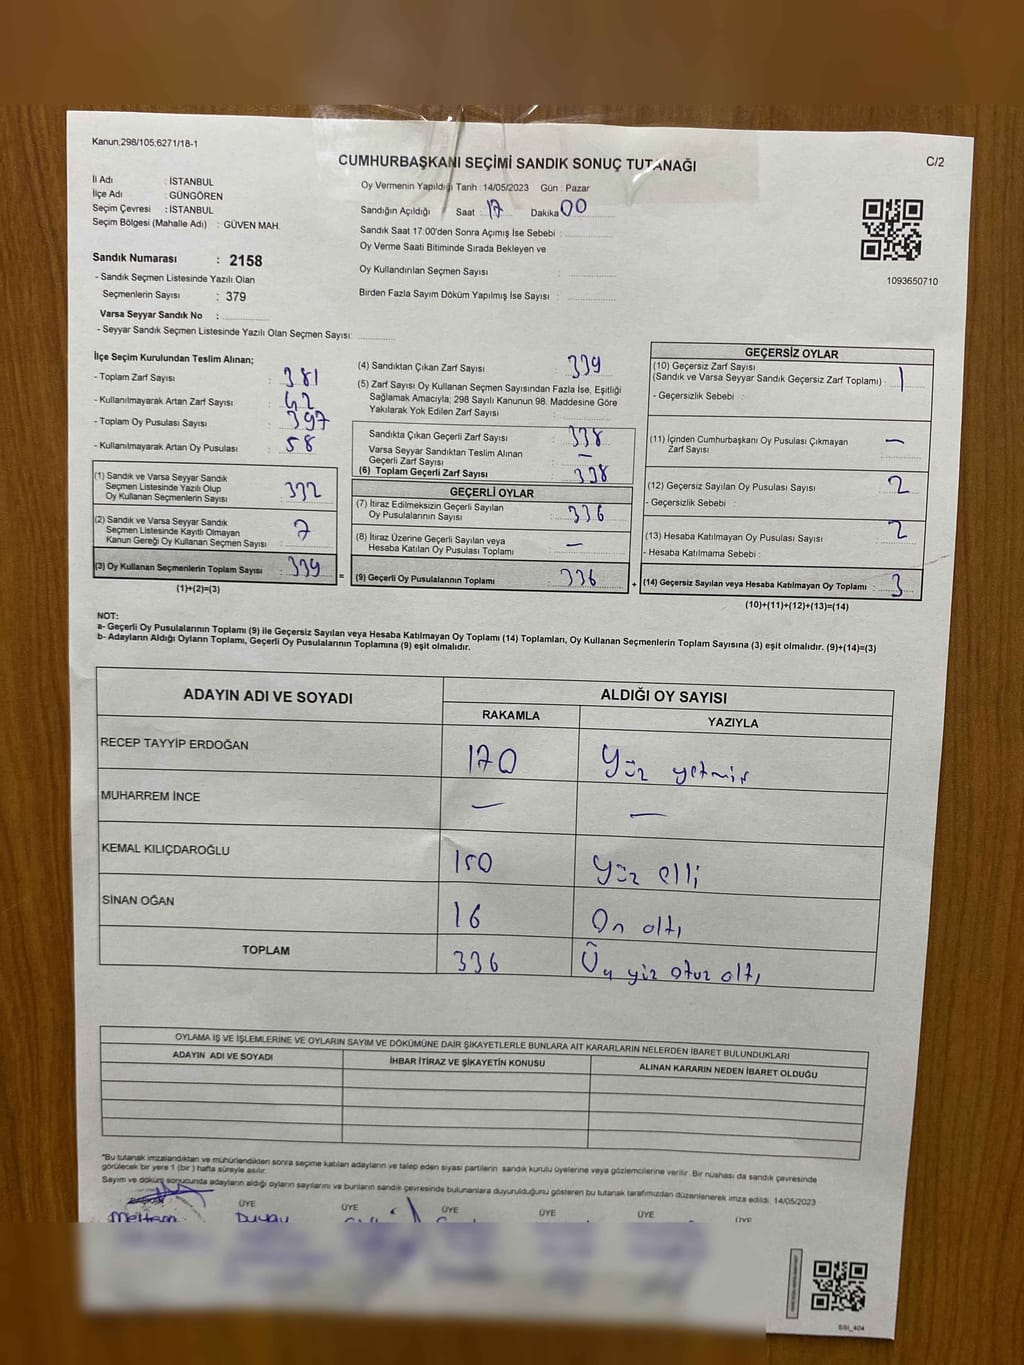 Kanun,298/105,6271/18-1
CUMHURBAŞKANI SEÇİMİ SANDIK SONUÇ TUTANAĞI
C/2
İl Adı : İSTANBUL
İlçe Adı : GÜNGÖREN
Seçim Çevresi : İSTANBUL
Seçim Bölgesi (Mahalle Adı) : GÜVEN MAH.
Sandık Numarası : 2158
- Sandık Seçmen Listesinde Yazılı Olan
Seçmenlerin Sayısı : 379
Varsa Seyyar Sandık No :
- Seyyar Sandık Seçmen Listesinde Yazılı Olan Seçmen Sayısı:
Oy Vermenin Yapıldığı Tarih : 14/05/2023 Gün : Pazar
Sandığın Açıldığı Saat : 17 Dakika 00
Sandık Saat 17.00'den Sonra Açımış İse Sebebi :
Oy Verme Saati Bitiminde Sırada Bekleyen ve
Oy Kullandırılan Seçmen Sayısı :
Birden Fazla Sayım Döküm Yapılmış İse Sayısı :
1093650710
İlçe Seçim Kurulundan Teslim Alınan;
- Toplam Zarf Sayısı : 381
- Kullanılmayarak Artan Zarf Sayısı : 42
- Toplam Oy Pusulası Sayısı : 397
- Kullanılmayarak Artan Oy Pusulası : 58
(1) Sandık ve Varsa Seyyar Sandık
Seçmen Listesinde Yazılı Olup
Oy Kullanan Seçmenlerin Sayısı : 332
(2) Sandık ve Varsa Seyyar Sandık
Seçmen Listesinde Kayıtlı Olmayan
Kanun Gereği Oy Kullanan Seçmen Sayısı : 7
(3) Oy Kullanan Seçmenlerin Toplam Sayısı : 339
(1)+(2)=(3)
=
(4) Sandıktan Çıkan Zarf Sayısı : 339
(5) Zarf Sayısı Oy Kullanan Seçmen Sayısından Fazla İse, Eşitliği
Sağlamak Amacıyla; 298 Sayılı Kanunun 98. Maddesine Göre
Yakılarak Yok Edilen Zarf Sayısı :
Sandıkta Çıkan Geçerli Zarf Sayısı : 338
Varsa Seyyar Sandıktan Teslim Alınan
Geçerli Zarf Sayısı : —
(6) Toplam Geçerli Zarf Sayısı : 338
GEÇERLİ OYLAR
(7) İtiraz Edilmeksizin Geçerli Sayılan
Oy Pusulalarının Sayısı : 336
(8) İtiraz Üzerine Geçerli Sayılan veya
Hesaba Katılan Oy Pusulası Toplamı : —
(9) Geçerli Oy Pusulalarının Toplamı : 336
+
GEÇERSİZ OYLAR
(10) Geçersiz Zarf Sayısı
(Sandık ve Varsa Seyyar Sandık Geçersiz Zarf Toplamı) : 1
- Geçersizlik Sebebi :
(11) İçinden Cumhurbaşkanı Oy Pusulası Çıkmayan
Zarf Sayısı : —
(12) Geçersiz Sayılan Oy Pusulası Sayısı : 2
- Geçersizlik Sebebi :
(13) Hesaba Katılmayan Oy Pusulası Sayısı : 2
- Hesaba Katılmama Sebebi :
(14) Geçersiz Sayılan veya Hesaba Katılmayan Oy Toplamı : 3
(10)+(11)+(12)+(13)=(14)
NOT:
a- Geçerli Oy Pusulalarının Toplamı (9) ile Geçersiz Sayılan veya Hesaba Katılmayan Oy Toplamı (14) Toplamları, Oy Kullanan Seçmenlerin Toplam Sayısına (3) eşit olmalıdır. (9)+(14)=(3)
b- Adayların Aldığı Oyların Toplamı, Geçerli Oy Pusulalarının Toplamına (9) eşit olmalıdır.
ADAYIN ADI VE SOYADI
ALDIĞI OY SAYISI
RAKAMLA YAZIYLA
RECEP TAYYİP ERDOĞAN 170 Yüz yetmiş
MUHARREM İNCE — —
KEMAL KILIÇDAROĞLU 150 Yüz elli
SİNAN OĞAN 16 On altı
TOPLAM 336 Üç yüz otuz altı
OYLAMA İŞ VE İŞLEMLERİNE VE OYLARIN SAYIM VE DÖKÜMÜNE DAİR ŞİKAYETLERLE BUNLARA AİT KARARLARIN NELERDEN İBARET BULUNDUKLARI
ADAYIN ADI VE SOYADI İHBAR İTİRAZ VE ŞİKAYETİN KONUSU ALINAN KARARIN NEDEN İBARET OLDUĞU
*Bu tutanak imzalandıktan ve mühürlendikten sonra seçime katılan adayların ve talep eden siyasi partilerin sandık kurulu üyelerine veya gözlemcilerine verilir. Bir nüshası da sandık çevresinde
görülecek bir yere 1 (bir ) hafta süreyle asılır.
Sayım ve döküm sonucunda adayların aldığı oyların sayılarını ve bunların sandık çevresinde bulunanlara duyurulduğunu gösteren bu tutanak tarafımızdan düzenlenerek imza edildi. 14/05/2023
BAŞKAN ÜYE ÜYE ÜYE ÜYE ÜYE ÜYE
SSI_404